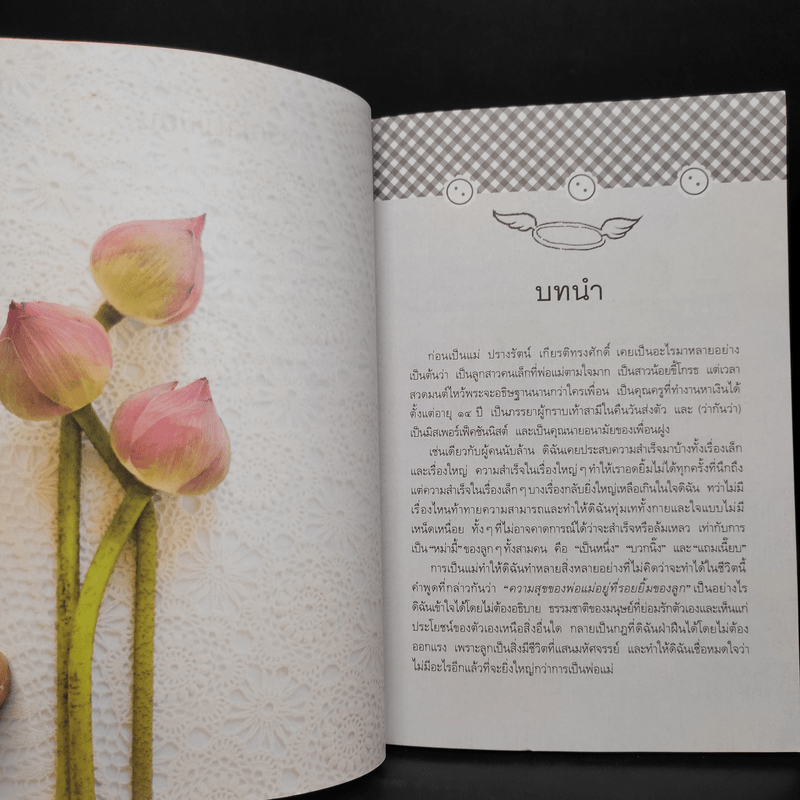 บทนำ
ก่อนเป็นแม่ ปรางรัตน์ เกียรติทรงศักดิ์ เคยเป็นอะไรมาหลายอย่าง
เป็นต้นว่า เป็นลูกสาวคนเล็กที่พ่อแม่ตามใจมาก เป็นสาวน้อยขี้โกรธ แต่เวลา
สวดมนต์ไหว้พระจะอธิษฐานนานกว่าใครเพื่อน เป็นคุณครูที่ทำงานหาเงินได้
ตั้งแต่อายุ ๑๔ ปี เป็นภรรยาผู้กราบเท้าสามีในคืนวันส่งตัว และ (ว่ากันว่า)
เป็นมิสเพอร์เฟ็คชันนิสต์ และเป็นคุณนายอนามัยของเพื่อนฝูง
เช่นเดียวกับผู้คนนับล้าน ดิฉันเคยประสบความสำเร็จมาบ้างทั้งเรื่องเล็ก
และเรื่องใหญ่ ความสำเร็จในเรื่องใหญ่ๆ ทำให้เราอดยิ้มไม่ได้ทุกครั้งที่นึกถึง
แต่ความสำเร็จในเรื่องเล็กๆ บางเรื่องกลับยิ่งใหญ่เหลือเกินในใจดิฉัน ทว่าไม่มี
เรื่องไหนท้าทายความสามารถและทำให้ดิฉันทุ่มเททั้งกายและใจแบบไม่มี
เหน็ดเหนื่อย ทั้งๆ ที่ไม่อาจคาดการณ์ได้ว่าจะสำเร็จหรือล้มเหลว เท่ากับการ
เป็น “หม่ามี้” ของลูกๆ ทั้งสามคน คือ “เป็นหนึ่ง” “บวกนิ๊ง” และ “แถมเนี๊ยบ”
การเป็นแม่ทำให้ดิฉันทำหลายสิ่งหลายอย่างที่ไม่คิดว่าจะทำได้ในชีวิตนี้
คำพูดที่กล่าวกันว่า “ความสุขของพ่อแม่อยู่ที่รอยยิ้มของลูก” เป็นอย่างไร
ดิฉันเข้าใจได้โดยไม่ต้องอธิบาย ธรรมชาติของมนุษย์ที่ย่อมรักตัวเองและเห็นแก่
ประโยชน์ของตัวเองเหนือสิ่งอื่นใด กลายเป็นกฎที่ดิฉันฝ่าฝืนได้โดยไม่ต้อง
ออกแรง เพราะลูกเป็นสิ่งมีชีวิตที่แสนมหัศจรรย์ และทำให้ดิฉันเชื่อหมดใจว่า
ไม่มีอะไรอีกแล้วที่จะยิ่งใหญ่กว่าการเป็นพ่อแม่